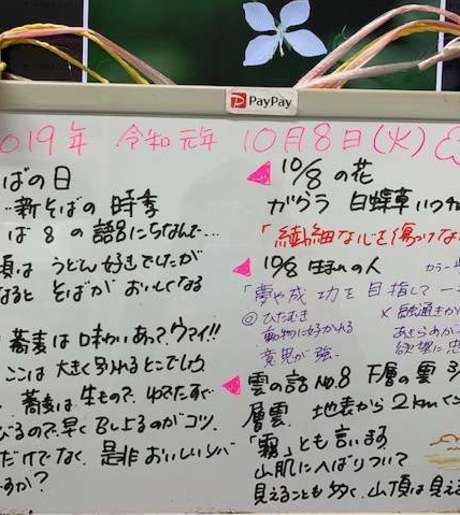 PayPay
019年 令和元年 10月8日(火)
ばの日
新そばの 時季
ば 8 の 語呂にちなんで…
頃は うどん好きでしたが
なると そばが おいしくなる
蕎麦は味わいあって、ウマイ!!
ここは 大きく別れるとこでしょう
蕎麦は生もので、ゆでたすぐ
びるので、早く召し上るのがコツ
だけでなく、是非おいしいソバ
すか?
10/8 の花
ガウラ 白蝶草 いつ
「繊細な心を傷つけな
10/8 生まれの人
カラー
「夢や成功を目指して
◎ひたむき
動物に好かれる
意思が強
× 融通きか
あきらめが
欲望に忠
雲の話 No.8 下層の雲 3/
層雲. 地表から 2km く
「霧」とも言います
山肌にへばりついて
見えることも多く、山頂は見え